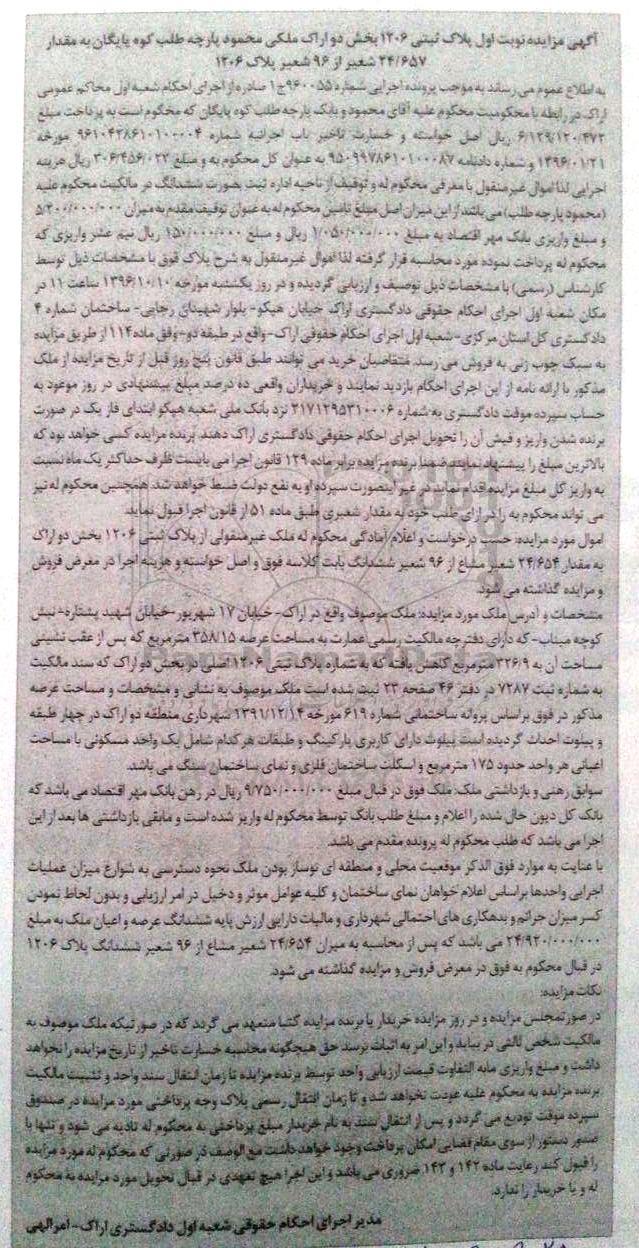 آگهی مزایده نوبت اول پلاک ثبتی ۱۲۰۶ بخش دو اراک ملکی محمود پارچه طلب کوه پایگان به مقدار
۲۴/۶۵۷ شعیر از ۹۶ شعیر پلاک ۱۲۰۶
به اطلاع عموم می رساند به موجب پرونده اجرایی شماره ۹۶۰۰۵۵ج۱ صادره از اجرای احکام شعبه اول محاکم عمومی
اراک در رابطه با محکومیت محکوم علیه آقای محمود و بابک پارچه طلب کوه پایگان که محکوم است به پرداخت مبلغ
۶/۱۲۹/۱۲۰/۴۷۲ ریال اصل خواسته و خسارت تاخیر باب اجرائیه شماره ۹۶۱۰۴۲۸۶۱۰۱۰۰۰۰۴ مورخه
۱۳۹۶/۰۱/۲۱ و شماره دادنامه ۹۵۰۹۹۷۸۶۱۰۱۰۰۰۸۷ به عنوان کل محکوم به و مبلغ ۳۰۶/۴۵۶/۰۲۳ ریال هزینه
اجرایی لذا اموال غیر منقول با معرفی محکوم له و توقیف از ناحیه اداره ثبت بصورت ششدانگ در مالکیت محکوم علیه
(محمود پارچه طلب) می باشد از این میزان اصل مبلغ تامین محکوم له به عنوان توقیف مقدم به میزان ۵/۲۰۰/۰۰۰/۰۰۰
و مبلغ واریزی بانک مهر اقتصاد به مبلغ ۱/۰۵۰/۰۰۰/۰۰۰ ریال و مبلغ ۱۵۰/۰۰۰/۰۰۰ ریال نیم عشر واریزی که
محکوم له پرداخت نموده مورد محاسبه قرار گرفته لذا اموال غیرمنقول به شرح پلاک فوق با مشخصات ذیل توسط
کارشناس (رسمی) با مشخصات ذیل توصیف و ارزیابی گردیده و در روز یکشنبه مورخه ۱۳۹۶/۱۰/۱۰ ساعت ۱۱ در
مکان شعبه اول اجرای احکام حقوقی دادگستری اراک خیابان هپکو- بلوار شهیدان رجایی- ساختمان شماره ۴
دادگستری کل استان مرکزی-شعبه اول اجرای احکام حقوقی اراک-واقع در طبقه دو-وفق ماده ۱۱۴ از طریق مزایده
به سبک چوب زنی به فروش می رسد. متقاضیان خرید می توانند طبق قانون پنج روز قبل از تاریخ مزایده از ملک
مذکور با ارائه نامه از این اجرای احکام بازدید نمایند و خریداران واقعی ده درصد مبلغ پیشنهادی در روز موعود به
حساب سپرده موقت دادگستری به شماره ۲۱۷۱۲۹۵۳۱۰۰۰۶ نزد بانک ملی شعبه هپکو ابتدای فاز یک در صورت
برنده شدن واریز و فیش آن را تحویل اجرای احکام حقوقی دادگستری اراک دهند. برنده مزایده کسی خواهد بود که
بالاترین مبلغ را پیشنهاد نماید ضمنا برنده مزایده برابر ماده ۱۲۹ قانون اجرا می بایست ظرف حداکثر یک ماه نسبت
به واریز کل مبلغ مزایده اقدام نماید در غیر اینصورت سپرده او به نفع دولت ضبط خواهد شد. همچنین محکوم له نیز
می تواند محکوم به را در ازای طلب خود به مقدار شعیری طبق ماده ۵۱ از قانون اجرا قبول نماید.
اموال مورد مزایده: حسب درخواست و اعلام آمادگی محکوم له ملک غیرمنقولی از پلاک ثبتی ۱۲۰۶ بخش دو اراک
به مقدار ۲۴/۶۵۴ شعیر مشاع از ۹۶ شعیر ششدانگ بابت کلاسه فوق و اصل خواسته و هزینه اجرا در معرض فروش
و مزایده گذاشته می شود.
مشخصات و آدرس ملک مورد مزایده: ملک موصوف واقع در اراک- خیابان ۱۷ شهریور-خیابان شهید پشتاره-نبش
کوچه میناب- که دارای دفترچه مالکیت رسمی عمارت به مساحت عرصه ۳۵۸/۱۵ مترمربع که پس از عقب نشینی
مساحت آن به ۳۲۶/۹ مترمربع کاهش یافته که به شماره پلاک ثبتی ۱۲۰۶ اصلی در بخش دو اراک که سند مالکیت
به شماره ثبت ۷۲۸۷ در دفتر ۴۶ صفحه ۲۳ ثبت شده است ملک موصوف به نشانی و مشخصات و مساحت عرصه
مذکور در فوق براساس پروانه ساختمانی شماره ۶۱۹ مورخه ۱۳۹۱/۱۲/۱۴ شهرداری منطقه دو اراک در چهار طبقه
و پیلوت احداث گردیده است پیلوت دارای کاربری پارکینگ و طبقات هرکدام شامل یک واحد مسکونی با مساحت
اعیانی هر واحد حدود ۱۷۵ مترمربع و اسکلت ساختمان فلزی و نمای ساختمان سنگ می باشد.
سوابق رهنی و بازداشتی ملک: ملک فوق در قبال مبلغ ۹/۷۵۰/۰۰۰/۰۰۰ ریال در رهن بانک مهر اقتصاد می باشد که
بانک کل دیون حال شده را اعلام و مبلغ طلب بانک توسط محکوم له واریز شده است و مابقی بازداشتی ها بعد از این
اجرا می باشد که طلب محکوم له پرونده مقدم می باشد.
با عنایت به موارد فوق الذکر موقعیت محلی و منطقه ای نوساز بودن ملک نحوه دسترسی به شوارع میزان عملیات
اجرایی واحدها براساس اعلام خواهان نمای ساختمان و کلیه عوامل موثر و دخیل در امر ارزیابی و بدون لحاظ نمودن
کسر میزان جرائم و بدهکاری های احتمالی شهرداری و مالیات دارایی ارزش پایه ششدانگ عرصه و اعیان ملک به مبلغ
۲۴/۹۲۰/۰۰۰/۰۰۰ می باشد که پس از محاسبه به میزان ۲۴/۶۵۴ شعیر مشاع از ۹۶ شعیر ششدانگ پلاک ۱۲۰۶
در قبال محکوم به فوق در معرض فروش و مزایده گذاشته می شود.
نکات مزایده:
در صورتمجلس مزایده و در روز مزایده خریدار یا برنده مزایده کتبا متعهد می گردد که در صورتیکه ملک موصوف به
مالکیت شخص ثالثی در بیاید و این امر به اثبات برسد حق هیچگونه محاسبه خسارت تاخیر از تاریخ مزایده را نخواهد
داشت و مبلغ واریزی مابه التفاوت قیمت ارزیابی واحد توسط برنده مزایده تا زمان انتقال سند واحد و تثبیت مالکیت
برنده مزایده به محکوم علیه عودت نخواهد شد و تا زمان انتقال رسمی پلاک وجه پرداختی مورد مزایده در صندوق
سپرده موقت تودیع می گردد و پس از انتقال سند به نام خریدار مبلغ پرداختی به محکوم له تادیه می شود و تنها با
صدور دستور از سوی مقام قضایی امکان پرداخت وجود خواهد داشت مع الوصف در صورتی که محکوم له مورد مزایده
را قبول کند رعایت ماده ۱۴۲ و ۱۴۳ ضروری می باشد و این اجرا هیچ تعهدی در قبال تحویل مورد مزایده به محکوم
له و یا خریدار را ندارد.
مدیر اجرای احکام حقوقی شعبه اول دادگستری اراک- امرالهی